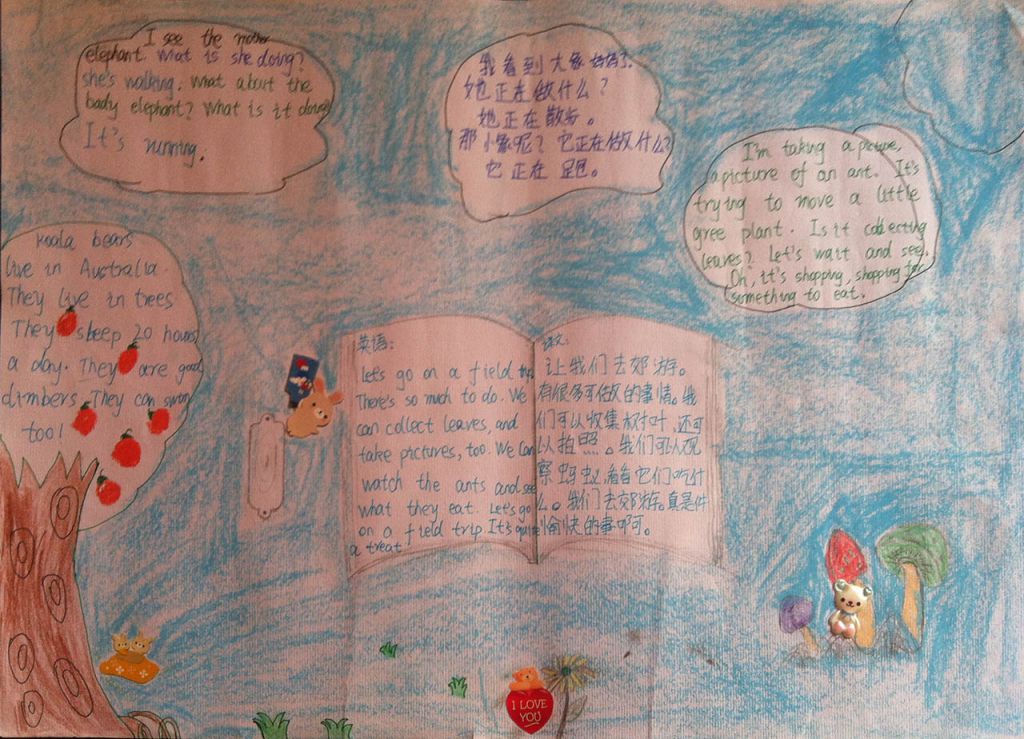 I see the mother
elephant. What is she doing?
she's walking. What about the
bady elephant? What is it doing?
It's running.
我看到大象妈妈了.
她正在做什么?
她正在散步。
那小象呢? 它正在做什么?
它正在跑。
I'm taking a picture,
a picture of an ant. It's
trying to move a little
gree plant. Is it collecting
leaves? Let's wait and see.
Oh, it's shopping, shopping for
something to eat.
Koala bears
live in Australia.
They live in trees
They sleep 20 hours
a day. They are good
climbers. They can swim
too!
英语:
Let's go on a field trip
There's so much to do. We
can collect leaves, and
take pictures, too. We can
watch the ants and see
what they eat. Let's go
on a field trip. It's quite
a treat!
让我们去郊游。
有很多可做的事情。我
们可以收集树叶,还可
以拍照....。我们可以观
察蚂蚁,看看它们吃什
么。我们去郊游。真是件
愉快的事啊。
I LOVE
YOU